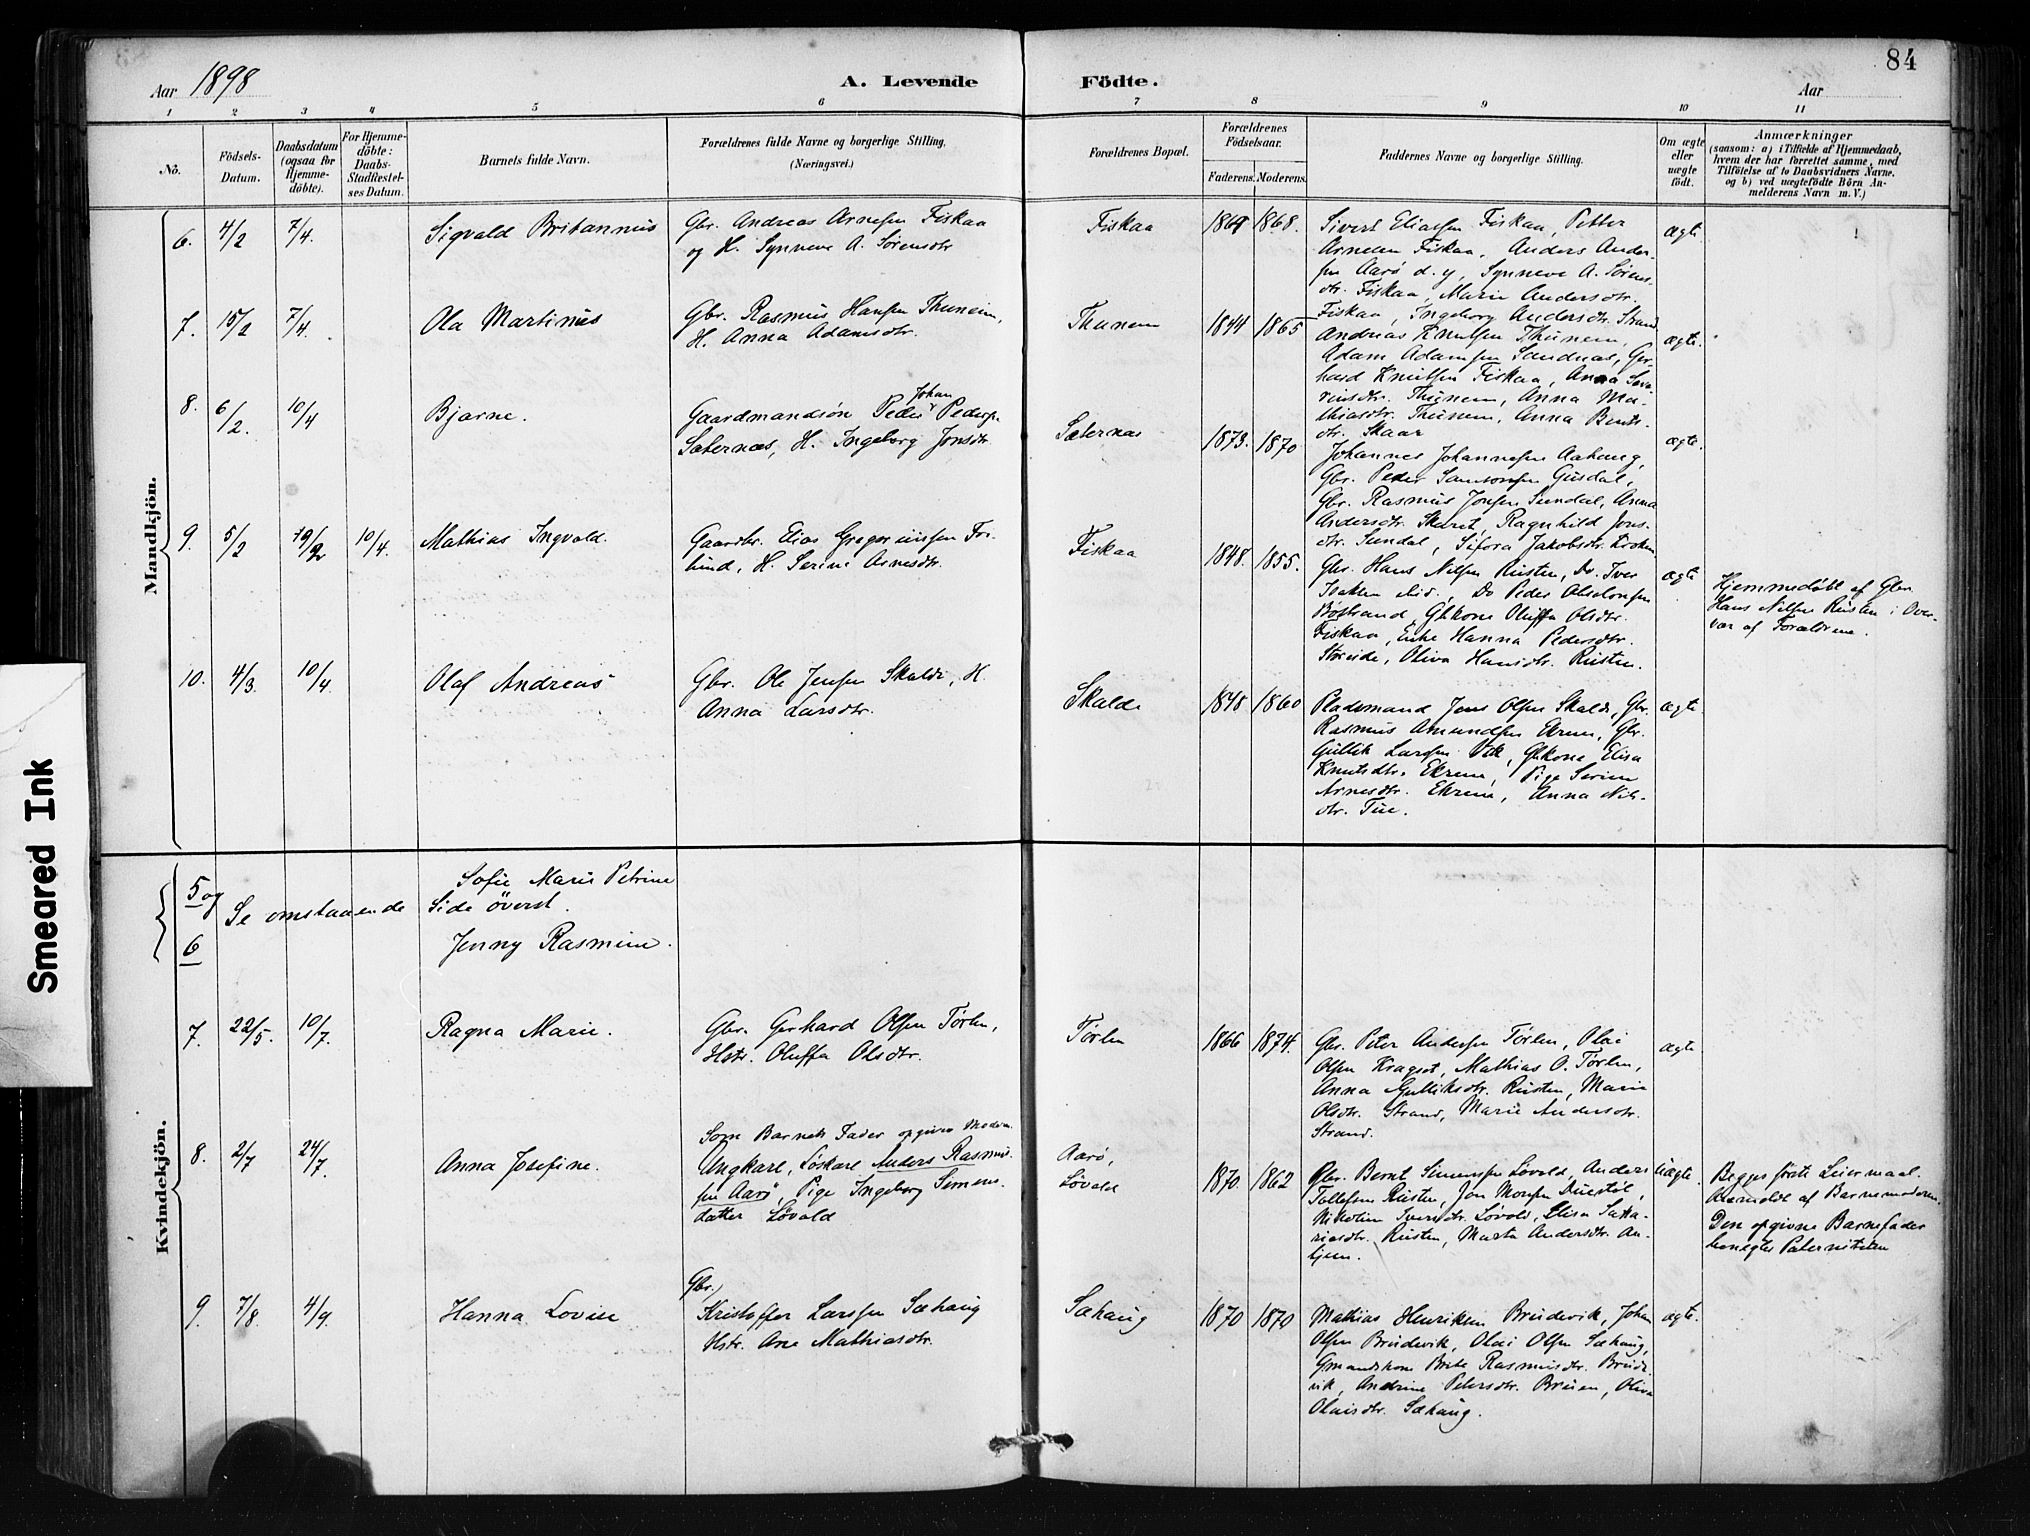 84
Aar 1898
A. Levende
Födte.
Aar
1 2 3 4 5 6 7 8 9 10 11
No.
Födsels-
Datum.
Daabsdatum
(ogsaa for
Hjemme-
döbte).
For Hjemme-
döbte:
Daabs-
Stadfæstel-
ses Datum.
Barnets fulde Navn.
Forældrenes fulde Navne og borgerlige Stilling.
(Næringsvei.)
Forældrenes Bopæl.
Forældrenes
Födselsaar.
Faderens. Moderens.
Faddernes Navne og borgerlige Stilling.
Om ægte
eller
uægte
födt.
Anmærkninger
(saasom: a) i Tilfælde af Hjemmedaab,
hvem der har forrettet samme, med
Tilföielse af to Daabsvidners Navne.
og b) ved uægtefödte Börn An-
melderens Navn m. V.)
Mandkjön.
6. 4/2 7/4. Sigvald Britannus
Gbr. Andreas Arnesen Fiskaa
og H. Synneve A. Sørensdtr
Fiskaa
1868.
Sivert Eliassen Fiskaa, Petter
Arnesen Fiskaa, Anders Ander-
sen Aarö d. y, Synneve A. Sørens-
dtr. Fiskaa, Marie Andersdtr.
Fiskaa, Ingeborg Andersdtr. Strand
ægte.
7. 15/2 7/4. Ola Martinus
Gbr. Rasmus Hansen Thunem,
H. Anna Adamsdtr.
Thunem
1844 1865
Andreas Knutsen Thunem,
Adam Adamsen Sandnes, Ger-
hard Knutsen Fiskaa, Anna Seve-
rinsdtr. Thunem, Anna Ma-
thiasdtr. Thunem, Anna Bernts-
dtr. Skaar
ægte.
8. 6/2. 10/4 Bjarne.
Gaardmandsön Peder Johan Peders.
Sæternæs, H. Ingeborg Jonsdtr.
Sæternæs
1873. 1870
Johannes Johannesen Aahaug,
Gbr. Peder Samsonsen Gusdal,
Gbr. Rasmus Jonsen Sundal, Anna
Andersdtr. Skaret, Ragnhild Jons-
dtr. Sundal, Sifora Jakobsdtr. Kroken
ægte.
9. 5/2 19/2 10/4. Mathias Ingvald.
Gaardbr. Elias Gregoriussen Fri-
lund, H. Serine Arnesdtr.
Fiskaa
1848. 1855.
Gbr. Hans Nilsen Rusten, Do. Iver
Isaksen Eid., Do Peder Absolonsen
Böstrand, Gbkone Oluffa Olsdtr.
Fiskaa, Enke Hanna Pedersdtr.
Støreide, Oliva Hansdtr. Rusten.
ægte
Hjemmedöbt af Gbr.
Hans Nilsen Rusten i Over-
vær af Forældrene.
10. 4/3. 10/4. Olaf Andreas
Gbr. Ole Jensen Skalde, H.
Anna Larsdtr.
Skalde
1848 1860
Pladsmand Jens Olsen Skalde, Gbr.
Rasmus Amundsen Ekrem, Gbr.
Gullik Larsen Vik, Gbkone Elisa
Knutsdtr. Ekrem, Pige Serine
Arnesdtr. Ekrem, Anna Nils-
dtr. Tue.
ægte.
Kvindekjön.
5 og
6
Sofie Marie Petrine
Se omstaaende Side överst.
Jenny Rasmine.
7. 22/5. 10/7. Ragna Marie.
Gbr. Gerhard Olsen Törlen,
Hstr. Oluffa Olsdtr.
Törlen
1866 1874.
Gbr. Peter Andersen Törlen, Olai
Olsen Kragset, Mathias O. Törlen,
Anna Gulliksdtr. Rusten, Marie
Olsdtr. Strand, Marie Andersdtr.
Strand.
ægte
8. 2/7 24/7 Anna Josefine.
Som Barnets Fader opgives Moderen
Ungkarl, Löskarl Anders Rasmus-
sen Aarö, Pige Ingeborg Simens-
datter Lövold
Aarö,
Lövold
1870. 1862
Gbr. Bernt Simensen Lövold, Anders
Tollefsen Rusten, Jon Monsen Duestöl,
Nikoline Iversdtr. Lövold, Elisa Saka-
riasdtr. Rusten, Marta Andersdtr. An-
hjem.
uægte.
Begges förste Leiermaal.
Anmeldt af Barnemoderen.
Den opgivne Barnefader
benegter Paterniteten
9. 7/8. 4/9. Hanna Lovise
Gbr.
Kristoffer Larssen Sæhaug
Hstr. Ane Mathiasdtr.
Sæhaug
1870 1870
Mathias Henriksen Brudevik, Johan
Olsen Brudevik, Olai Olsen Sæhaug,
Gmandskone Brite Rasmusdtr. Brude-
vik, Andrine Petersdtr. Bruen, Oliva
Olaisdtr. Sæhaug.
ægte.
Smeared Ink